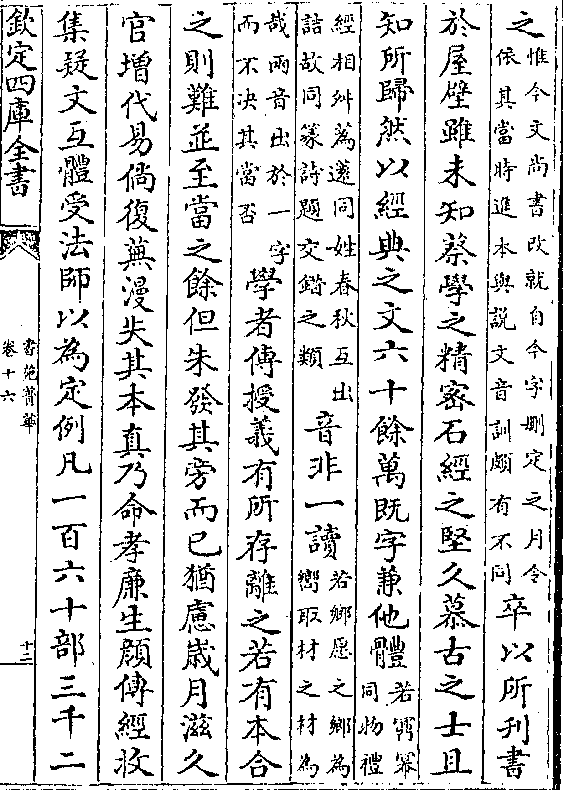 之惟今文尚書改就自今字刪定之月令
依其當時進本與說文音訓頗有不同卒以所刊書
於屋壁雖未知蔡學之精密石經之堅久慕古之士且
知所歸然以經典之文六十餘萬既字兼他體若冪
同物禮
經相舛為同姓春秋互出
詰故同篆詩題交錯之類音非一讀若鄉愿之鄉為
嚮取材之材為
哉兩音出於一字
而不決其當否學者傳授義有所存離之若有本合
之則難並至當之餘但朱發其旁而已猶慮歲月滋久
官增代易倘復蕪漫失其本真乃命孝廉生顔傳經收
集疑文互體受法師以為定例凡一百六十部三千二
欽定四庫全書
書苑菁華
卷十六
十二